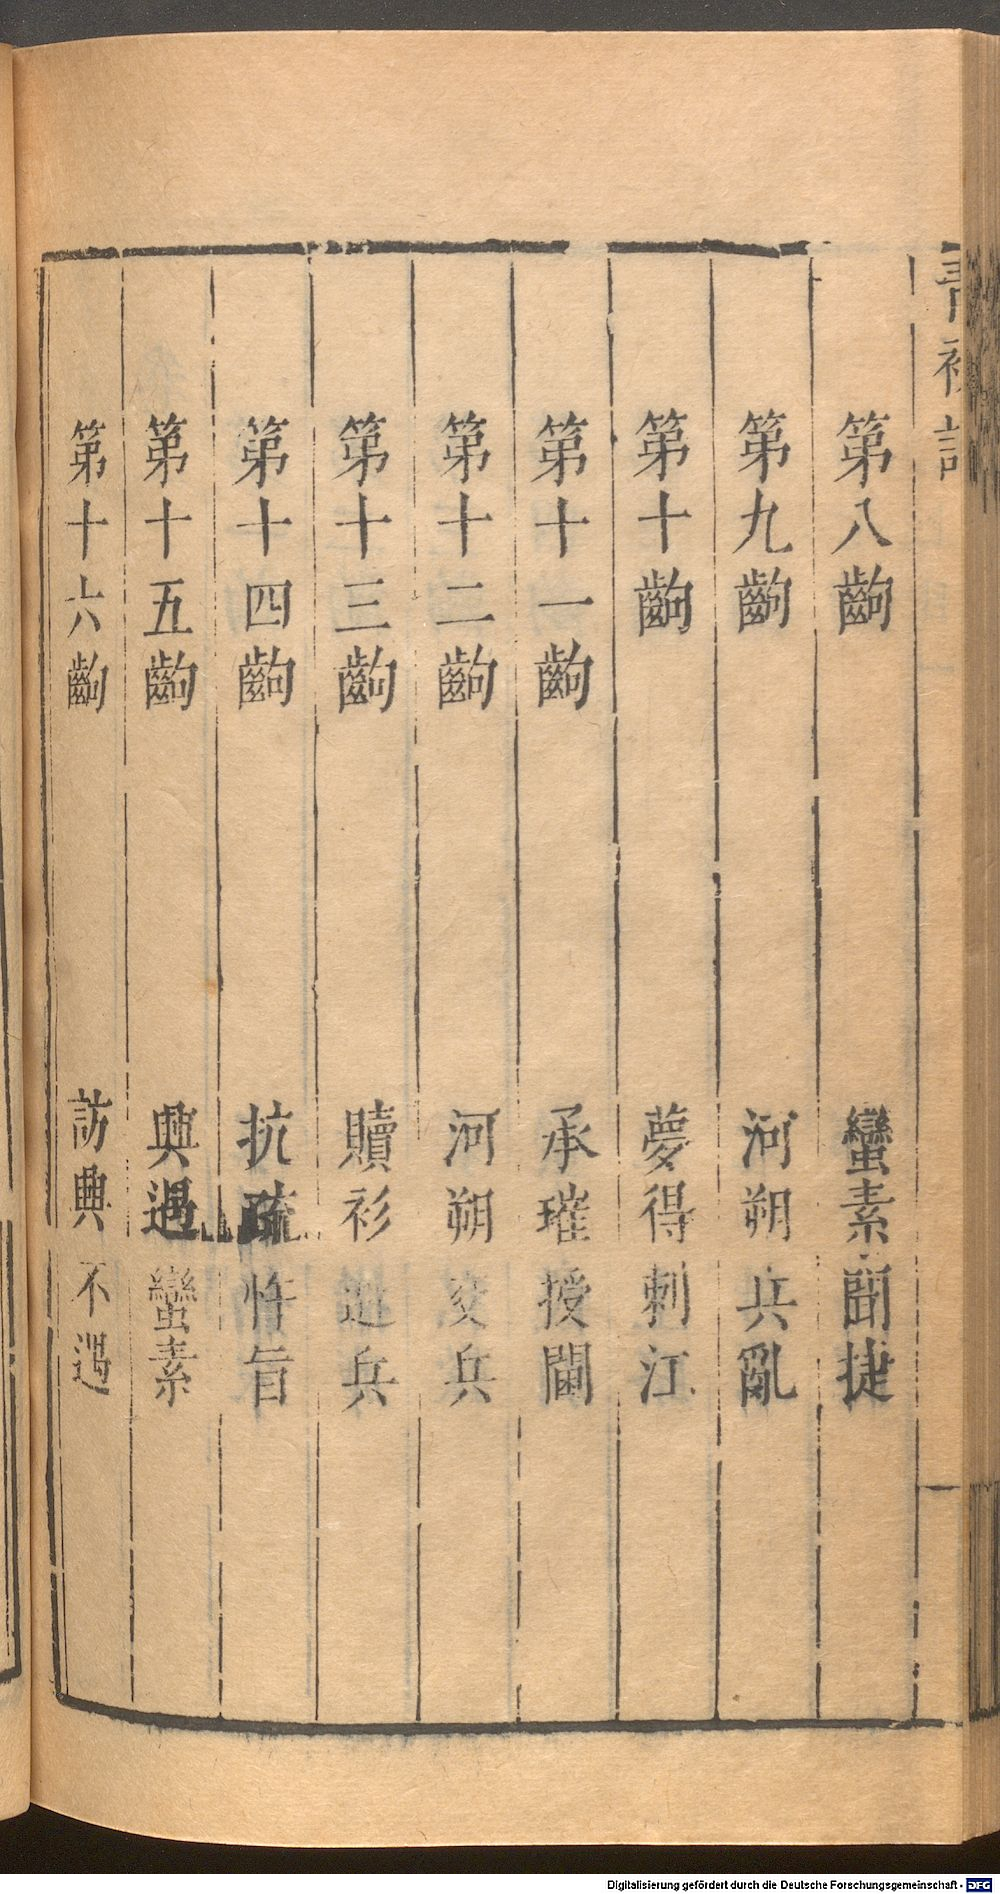 青衫記
第八齣 蠻素聞捷
第九齣 河朔兵亂
第十齣 夢得刺江
第十一齣 承璀授閫
第十二齣 河朔交兵
第十三齣 贖衫避兵
第十四齣 抗疏忤旨
第十五齣 興遇蠻素
第十六齣 訪興不遇
Digitalisierung gefördert durch die Deutsche Forschungsgemeinschaft - DFG